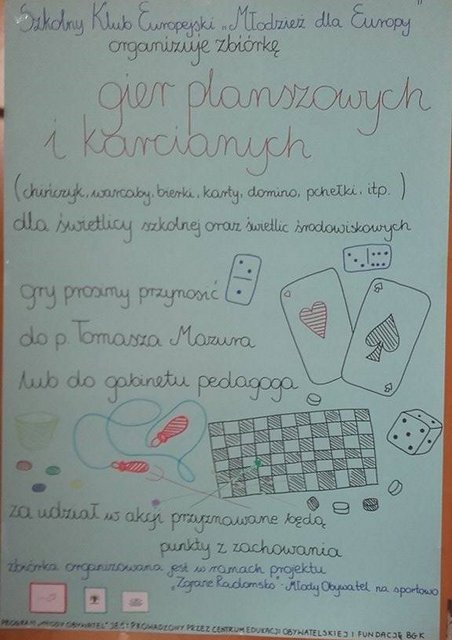 Szkolny Klub Europejski „Młodzież dla Europy"
organizuje zbiórkę
gier planszowych
i karcianych
(chińczyk, warcaby, bierki, karty, domino, pchełki, itp. )
dla świetlicy szkolnej oraz świetlic środowiskowych
gry prosimy przynosić
do p. Tomasza Mazura
lub do gabinetu pedagoga
za udział w akcji przyznawane będą
punkty z zachowania
zbiórka organizowana jest w ramach projektu
„Zgrane Radomsko" - Młody Obywatel na sportowo
PROGRAM „MŁODY OBYWATEL" JEST PROWADZONY PRZEZ CENTRUM EDUKACJI OBYWATELSKIEJ I FUNDACJĘ BGK